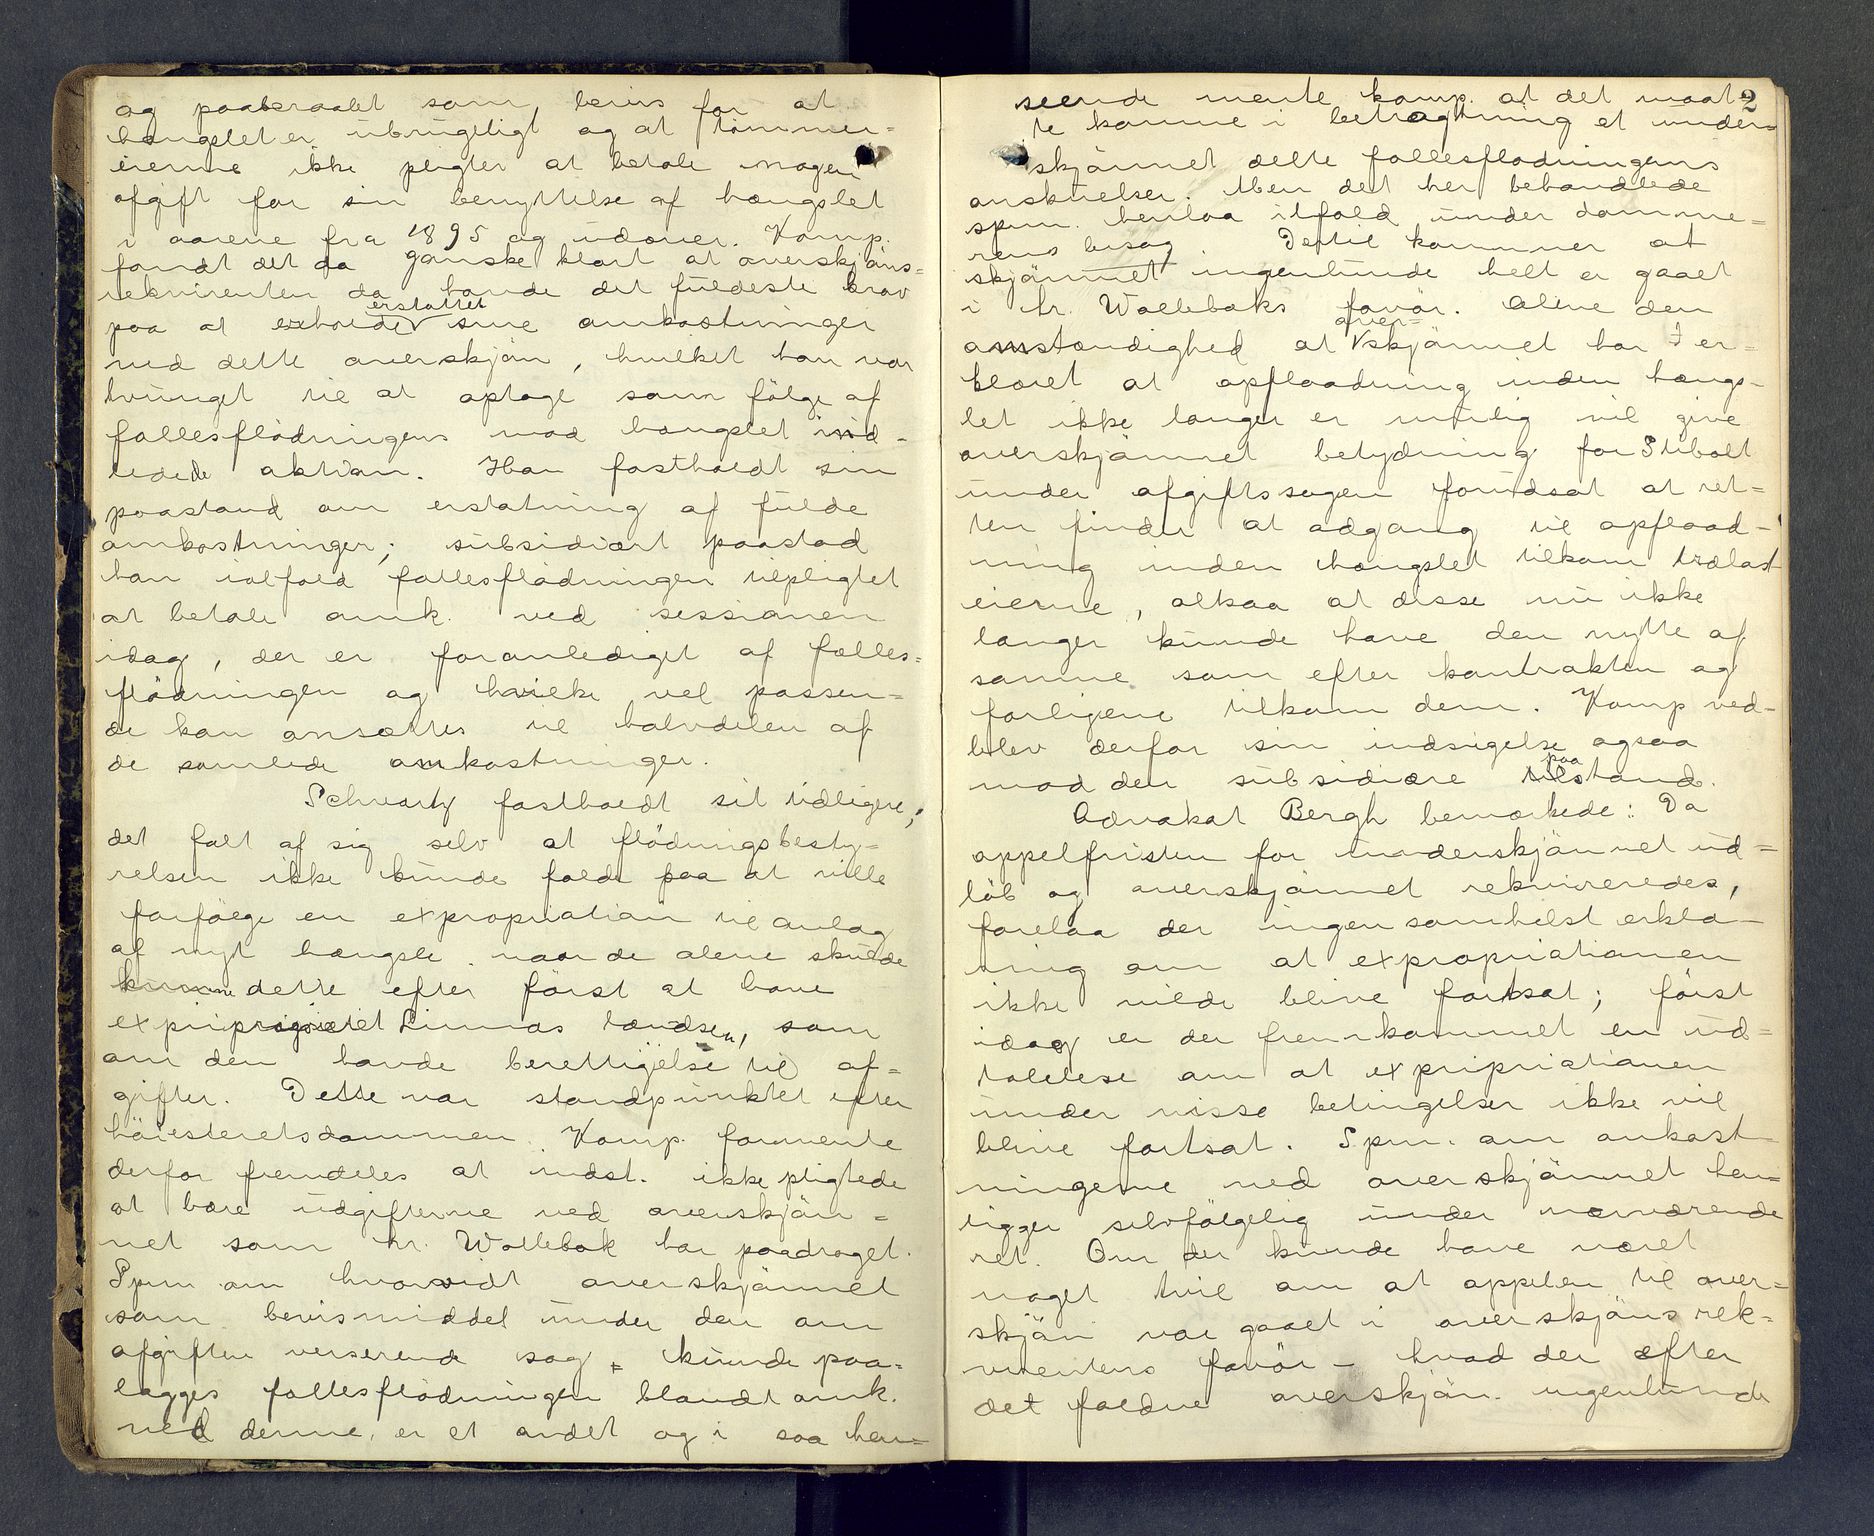 og paaberaabt som bevis for at
hængslet er ubrugeligt og at tömmer=
eierne ikke pligter at betale nogen
afgift for sin benyttelse af hængslet
i aarene fra 1895 og udover. Komp.
fandt det da ganske klart at overskjöns=
rekvirenten da havde det fuldeste krav
erstattet
paa at sine omkostninger
ved dette overskjön, hvilket han var
tvunget til at optage som fölge af
fællesflödningens mod hængslet ind-
ledede aktion. Han fastholdt sin
paastand om erstatning af fulde
omkostninger; subsidiært paastod
han ialfald fællesflödningen tilpligtet
at betale omk. ved sessionen
idag, der er foranlediget af fælles=
flödningen og hvilke vel passen=
de kan ansættes til halvdelen af
de samlede omkostninger.
Schwartz fastholdt sit tidligere;
det falt af sig selv at flödningsbesty=
relsen ikke kunde falde paa at ville
forfölge en expropriation til anlæg
af nyt hængsle naar de alene skulde
kunne dette efter först at have
expropriert Linnæs lændsen, som
om den havde berettigelse til af=
gifter. Dette var standpunktet efter
höiesteretsdommen. Komp. formente
derfor fremdeles at indst. ikke pligtede
at bære udgifterne ved overskjön=
net som hr. Wollebæk har paadraget.
Spm om hvorvidt overskjönnet
som bevismiddel under den om
afgiften verserende sag kunde paa=
lægges fællesflödningen blandt omk.
ved denne, er et andet og i saa hen=
2
seende mente komp. at det maat=
te komme i betragtning at under=
skjönnet delte fællesflödningens
anskuelser. Men det her behandlede
spm. henlaa ialfald under domme=
rens besag. Dertil kommer at
skjönnet ingenlunde helt er gaaet
i hr. Wollebæks favör. Alene den
over=
omstændighed at skjönnet har er=
klæret at opflaadning inden hængs=
let ikke længer er mulig vil give
overskjönnet betydning for Stibolt
under afgiftssagen forudsat at ret=
ten finder at adgang til opflaad=
ning inden hængslet tilkom trælast
eierne, altsaa at disse nu ikke
længer kunde have den nytte af
samme som efter kontrakten og
forligene tilkom dem. Komp ved=
blev derfor sin indsigelse ogsaa
paa
mod den subsidiære stand.
Advokat Bergh bemærkede: Da
appelfristen for underskjönnet ud=
löb og overskjönnet rekvireredes,
forelaa der ingensomhelst erklæ=
ring om at expropriationen
ikke vilde blive fortsat; först
idag er der fremkommet en ud=
talelse om at expripriationen
under visse betingelser ikke vil
blive fortsat. Spm. om omkost=
ningerne ved overskjönnet hen=
ligger selvfölgelig under nærværende
ret. Om der kunde have været
noget tvil om at appelen til over=
skjön var gaaet i overskjöns rek=
virentens favör – hvad der efter
det faldne overskjön ingenlunde